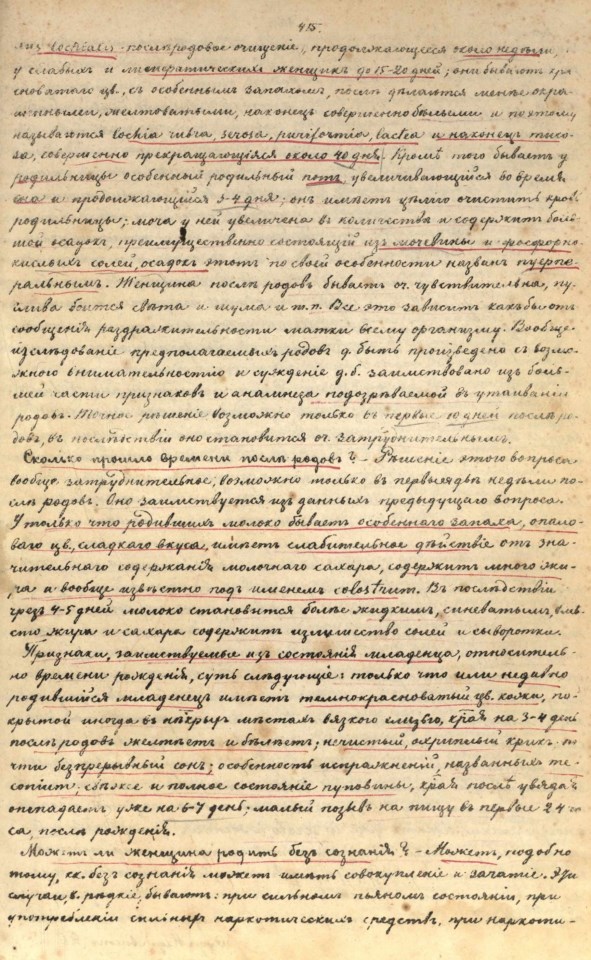 415.
лиз lochialis послѣродовое очищеніе, продолжающееся около недѣли,
у слабыхъ и лимфатическихъ женщинъ до 15-20 дней; они бываютъ кра
сноватаго цв., съ особеннымъ запахомъ, послѣ дѣлаются менѣе окра
шенными, желтоватыми, наконецъ совершенно бѣлыми и поэтому
называются lochia rubra serosa, puriformia, lactea и наконецъ muco-
sa, совершенно прекращающіяся около 40 дня. Кромѣ того бываетъ у
родильницы особенный родильный потъ, увеличивающійся во время
сна и продолжающійся 3-4 дня; онъ имѣетъ цѣлію очистить кровь
родильницы; моча у ней увеличена въ количествѣ и содержитъ боль
шой осадокъ, преимущественно состоящій изъ мочевины и фосфорно-
кислыхъ солей, осадокъ этотъ по своей особенности названъ пуэрпе-
ральнымъ. Женщина послѣ родовъ бываетъ оч. чувствительна, пу-
глива боится свѣта и шума и т. п. Все это зависитъ какъ бы отъ
сообщенія раздражительности матки всему организму. Вообще
изслѣдованіе предполагаемыхъ родовъ д. быть произведено съ возмо-
жною внимательностію и сужденіе д. б. заимствовано изъ боль-
шей части признаковъ и анамнеза подозрѣваемой въ утаиваніи
родовъ. Точное рѣшеніе возможно только въ первые 10 дней послѣ ро-
довъ, въ послѣдствіи оно становится оч. затруднительнымъ.
Сколько прошло времени послѣ родовъ? - Рѣшеніе этого вопроса
вообще затруднительное, возможно только въ первыя двѣ недѣли по-
слѣ родовъ. Оно заимствуется изъ данныхъ предыдущаго вопроса.
У только что родившихъ молоко бываетъ особеннаго запаха, опало-
ваго цв., сладкаго вкуса, имѣетъ слабительное дѣйствіе отъ зна-
чительнаго содержанія молочнаго сахара, содержитъ много жи-
ра и вообще извѣстно подъ именемъ colostrum. Въ послѣдствіи
чрезъ 4-5 дней молоко становится болѣе жидкимъ, синеватымъ, вмѣ-
сто жира и сахара содержитъ излишество солей и сыворотки.
Признаки, заимствуемые изъ состоянія младенца, относитель-
но времени рожденія, суть слѣдующіе: только что или недавно
родившійся младенецъ имѣетъ темнокрасноватый цв. кожи, по-
крытой иногда въ нѣкрыр мѣстахъ вязкою слизью, края на 3-4 день
послѣ родовъ желтѣетъ и бѣлѣетъ; нечистый, охриплый крикъ, по
чти безпрерывный сонъ; особенность испражненій, названныхъ me-
conium; свѣжее и полное состояніе пуповины, края послѣ увяда
отпадаетъ уже на 6-7 день; малый позывъ на пищу въ первые 24 ча-
са, послѣ рожденія.
Можетъ ли женщина родить безъ сознанія? - Можетъ, подобно
тому, кк. безъ сознанія можетъ имѣть совокупленіе и зачатіе. Эти
случаи, в. рѣдкіе, бываютъ: при сильномъ пьяномъ состояніи, при
употребленіи сильныхъ наркотическихъ средствъ, при наркоти-